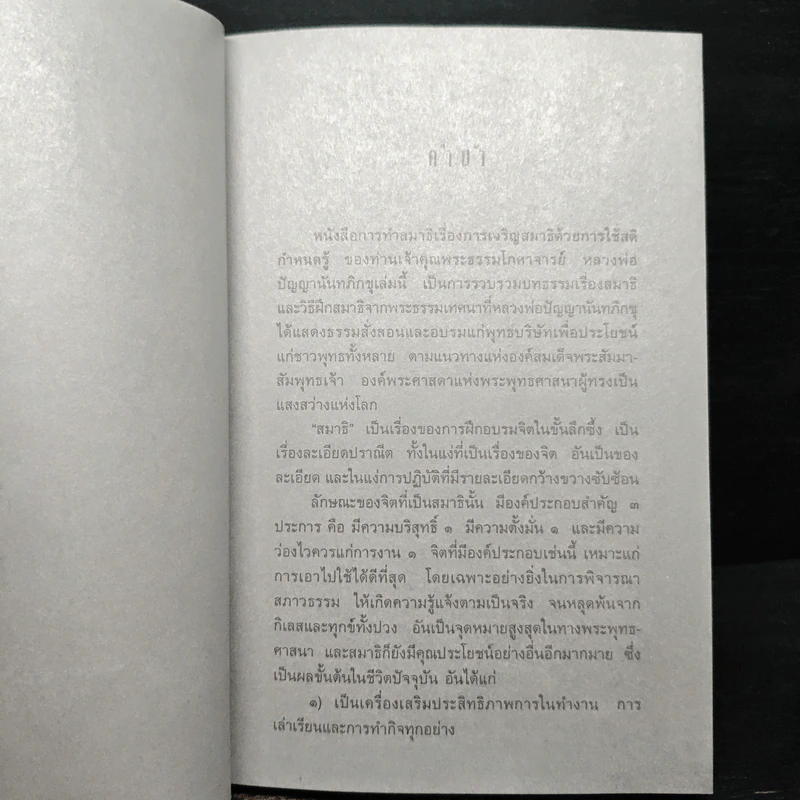 คำนำ
หนังสือการทำสมาธิเรื่องการเจริญสมาธิด้วยการใช้สติ
กำหนดรู้ ของท่านเจ้าคุณพระธรรมโกศาจารย์ หลวงพ่อ
ปัญญานันทภิกขุเล่มนี้ เป็นการรวบรวมบทธรรมเรื่องสมาธิ
และวิธีฝึกสมาธิจากพระธรรมเทศนาที่หลวงพ่อปัญญานันทภิกขุ
ได้แสดงธรรมสั่งสอนและอบรมแก่พุทธบริษัทเพื่อประโยชน์
แก่ชาวพุทธทั้งหลาย ตามแนวทางแห่งองค์สมเด็จพระสัมมา-
สัมพุทธเจ้า องค์พระศาสดาแห่งพระพุทธศาสนาผู้ทรงเป็น
แสงสว่างแห่งโลก
"สมาธิ" เป็นเรื่องของการฝึกอบรมจิตในขั้นลึกซึ้ง เป็น
เรื่องละเอียดปราณีต ทั้งในแง่ที่เป็นเรื่องของจิต อันเป็นของ
ละเอียด และในแง่การปฏิบัติที่มีรายละเอียดกว้างขวางซับซ้อน
ลักษณะของจิตที่เป็นสมาธินั้น มีองค์ประกอบสำคัญ ๓
ประการ คือ มีความบริสุทธิ์ ๑ มีความตั้งมั่น ๑ และมีความ
ว่องไวควรแก่การงาน ๑ จิตที่มีองค์ประกอบเช่นนี้ เหมาะแก่
การเอาไปใช้ได้ดีที่สุด โดยเฉพาะอย่างยิ่งในการพิจารณา
สภาวธรรม ให้เกิดความรู้แจ้งตามเป็นจริง จนหลุดพ้นจาก
กิเลสและทุกข์ทั้งปวง อันเป็นจุดหมายสูงสุดในทางพระพุทธ-
ศาสนา และสมาธิก็ยังมีคุณประโยชน์อย่างอื่นอีกมากมาย ซึ่ง
เป็นผลขั้นต้นในชีวิตปัจจุบัน อันได้แก่
๑) เป็นเครื่องเสริมประสิทธิภาพการในทำงาน การ
เล่าเรียนและการทำกิจทุกอย่าง